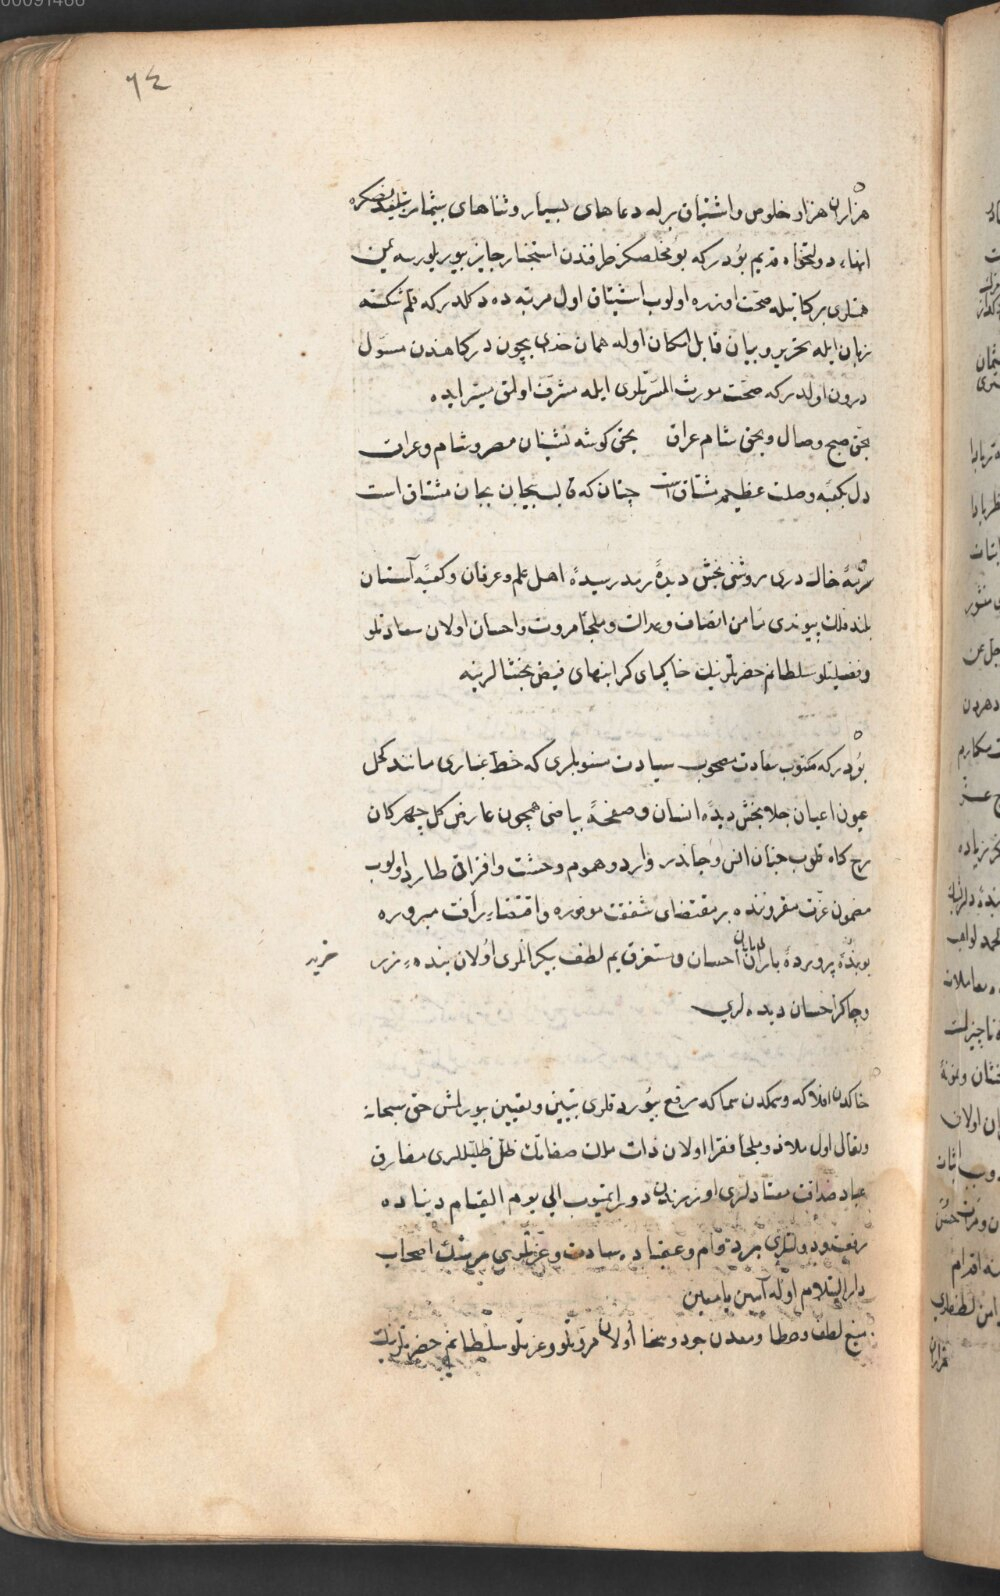 ٦٤
هزاران هزار خلوص و اشتیاق برله دعاهای بسیار و ثناهای بیشمار تبلیغندنصکره
انهاء دولتخواه قدیم بودرکه بو مخلصکز طرفندن استخبار جایز بیوریلورسه
برکاتیله صحت اوزره اولوب اشتیاق اول مرتبه ده دکلدرکه قلم شکسته
زبان ایله تحریر و بیان قابل امکان اوله همان خدای بیچون درکاهندن مسؤل
درون اولدرکه صحت مورث المسرتلری ایله مشرف اولمق میسر ایده
بحق صبح وصال و بحق شام عراق بحق کوشه نشینان مصر و شام و عراق
دل بکعبه وصلت عظیم مشتاق است چنان که قالب بیجان بجان مشتاق است
خاک دری روشنی بخش دیدهٔ رمد رسیدهٔ اهل علم و عرفان و کعبهٔ آستان
بلند فلک پیوندی مأمن انصاف و عدالت و ملجأ مروت و احسان اولان سعادتلو
و فضیلتلو سلطانم حضرتلرینک خاکپای کرانبهای فیض بخشالرینه
بودرکه مکتوب سعادت مصحوب سیادت منسوبلری که خط غباری مانند کحل
عیون اعیان جلابخش دیدهٔ انسان و صفحهٔ بیاضی همچون عارض کل چهرکان
رخ کاه قلوب جنان انس و جاندر وارد و هموم وحشت و افتراق طارد اولوب
مضمون عزت مقروننده بر مقتضای شفقت موفوره و اقتضاء رأفت مبروره
بو بندهٔ پروردهٔ باران احسان و مستغرق یم لطف بیکرانلری اولان بندهء زر
خرید
و چاکر احسان دیده لری
خاکدن افلاکه و سمکدن سماکه رفع بیوردقلری تبیین و تعیین بیورلمش حق سبحانه
و تعالی اول ملاذ و ملجأ فقرا اولان ذات ملک صفاتک ظل ظلیللری مفارق
عباد صداقت معتادلری اوزرندن دور ایتمیوب الی یوم القیام دنیاده
رفعت و دولتلری بردوام و عقباده سعادت و عزتلری اصحاب
دار السلام اوله آمین یا معین
منبع لطف و عطا و معدن جود و سخا اولان مروتلو و عزتلو سلطانم حضرتلرینک